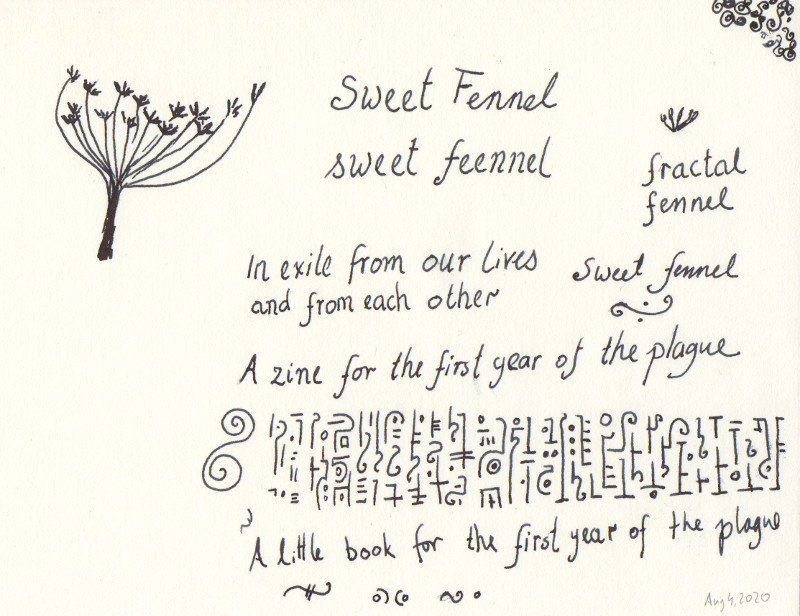 Sweet Fennel
sweet feennel
fractal
fennel
In exile from our lives
and from each other
Sweet fennel
A zine for the first year of the plague
A little book for the first year of the plague
Aug 4, 2020